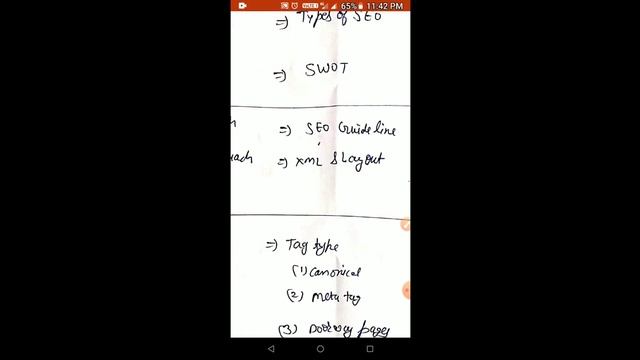 65% 11:42 PM
=) Types of SEO
=) SWOT
=) SEO Guideline
=) XML & Layout
=) Tag type
(1) Canonical
(2) Meta tag
(3) Doorway pages